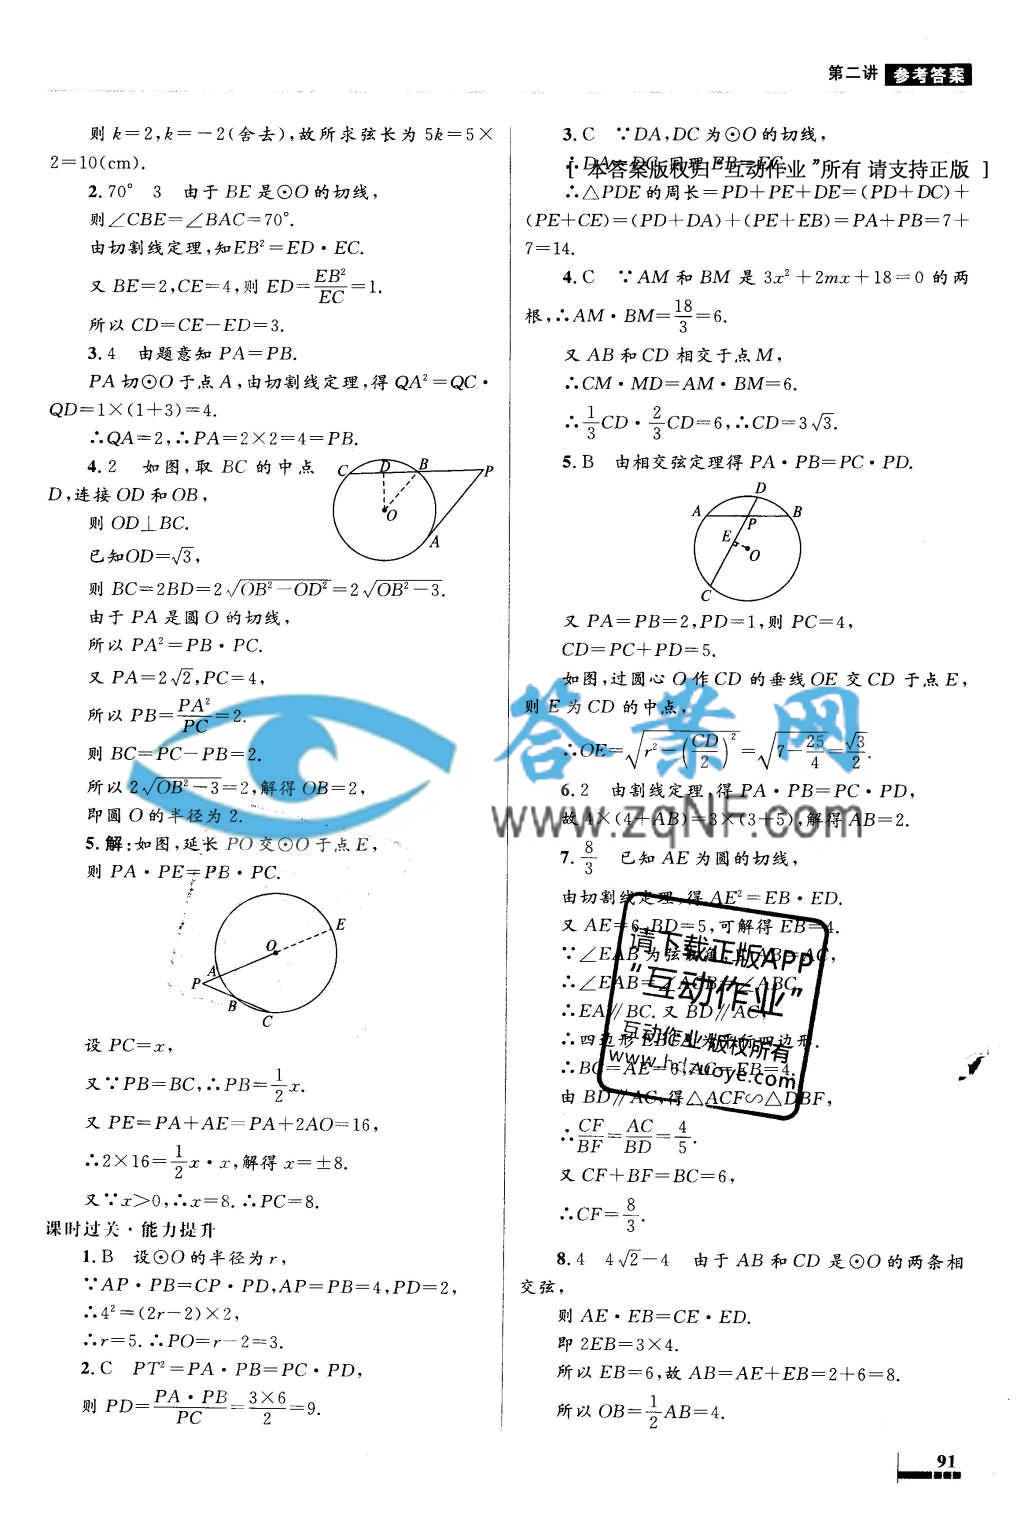 第二讲 参考答案
则 k=2,k=-2(舍去),故所求弦长为 5k=5×
2=10(cm).
2.70° 3 由于 BE 是⊙O 的切线,
则∠CBE=∠BAC=70°.
由切割线定理,知EB²=ED·EC.
又 BE=2,CE=4,则 ED=EB²/EC=1.
所以 CD=CE-ED=3.
3.4 由题意知 PA=PB.
PA 切⊙O 于点 A,由切割线定理,得 QA²=QC·
QD=1×(1+3)=4.
∴QA=2,∴PA=2×2=4=PB.
4.2 如图,取 BC 的中点
D,连接 OD 和 OB,
则 OD⊥BC.
已知OD=√3,
C D B P
O
A
则 BC=2BD=2√(OB²-OD²)=2√(OB²-3).
由于 PA 是圆 O 的切线,
所以 PA²=PB·PC.
又 PA=2√2,PC=4,
所以 PB=PA²/PC=2.
则 BC=PC-PB=2.
所以 2√(OB²-3)=2,解得 OB=2,
即圆 O 的半径为 2.
5.解:如图,延长 PO 交⊙O 于点 E,
则 PA·PE=PB·PC.
E
O
A
P
B
C
设 PC=x,
又∵PB=BC,∴PB=1/2 x.
又 PE=PA+AE=PA+2AO=16,
∴2×16=1/2 x·x,解得 x=±8.
又∵x>0,∴x=8.∴PC=8.
课时过关·能力提升
1.B 设⊙O 的半径为 r,
∵AP·PB=CP·PD,AP=PB=4,PD=2,
∴4²=(2r-2)×2,
∴r=5.∴PO=r-2=3.
2.C PT²=PA·PB=PC·PD,
则 PD=PA·PB/PC=3×6/2=9.
3.C ∵DA,DC 为⊙O 的切线,
∴DA=DC,同理 EB=EC.
[ 本答案版权归“互动作业”所有 请支持正版 ]
∴△PDE 的周长=PD+PE+DE=(PD+DC)+
(PE+CE)=(PD+DA)+(PE+EB)=PA+PB=7+
7=14.
4.C ∵AM 和 BM 是 3x²+2mx+18=0 的两
根,∴AM·BM=18/3=6.
又 AB 和 CD 相交于点 M,
∴CM·MD=AM·BM=6.
∴1/3 CD·2/3 CD=6,∴CD=3√3.
5.B 由相交弦定理得 PA·PB=PC·PD.
D
A P B
E
O
C
又 PA=PB=2,PD=1,则 PC=4,
CD=PC+PD=5.
如图,过圆心 O 作 CD 的垂线 OE 交 CD 于点 E,
则 E 为 CD 的中点,
∴OE=√(r²-(CD/2)²)=√(7-25/4)=√3/2.
6.2 由割线定理,得 PA·PB=PC·PD,
故 4×(4+AB)=3×(3+5),解得 AB=2.
7.8/3 已知 AE 为圆的切线,
由切割线定理,得 AE²=EB·ED.
又 AE=6,BD=5,可解得 EB=4.
∵∠EAB 为弦切角,且 AB=AC,
∴∠EAB=∠ACB=∠ABC.
∴EA∥BC.又 BD∥AC,
∴四边形 EBCA 为平行四边形.
∴BC=AE=6,AC=EB=4.
由 BD∥AC,得△ACF∽△DBF,
∴CF/BF=AC/BD=4/5.
又 CF+BF=BC=6,
∴CF=8/3.
8.4 4√2-4 由于 AB 和 CD 是⊙O 的两条相
交弦,
则 AE·EB=CE·ED.
即 2EB=3×4.
所以 EB=6,故 AB=AE+EB=2+6=8.
所以 OB=1/2 AB=4.
答业网
www.zqNF.com
请下载正版APP
“互动作业”
互动作业 版权所有
www.hdzuoye.com
91